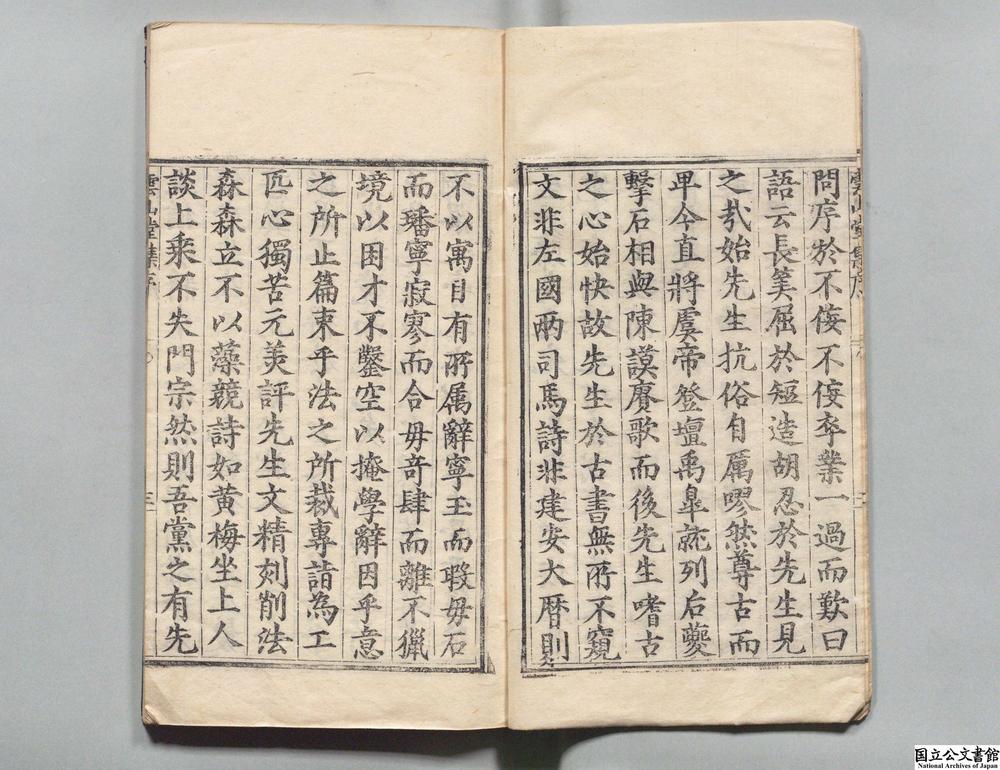 問序於不佞不佞卒業一過而歎曰
語云長筭屈於短造胡忍於先生見
之㢤始先生抗俗自厲嘐然尊古而
卑今直將虞帝登壇禹臯就列后夔
擊石相與陳謨賡歌而後先生嗜古
之心始快故先生於古書無所不窺
文非左國兩司馬詩非建安大曆則
不以寓目有所属辭寧玉而瑕毋石
而璠寧寂寥而合毋竒肆而離不獵
境以困才不鑿空以掩學辭因乎意
之所止篇束乎法之所裁專詣為工
匠心獨苦元美評先生文精刻削法
森森立不以藻競詩如黄梅坐上人
談上乘不失門宗然則吾黨之有先
国立公文書館
National Archives of Japan